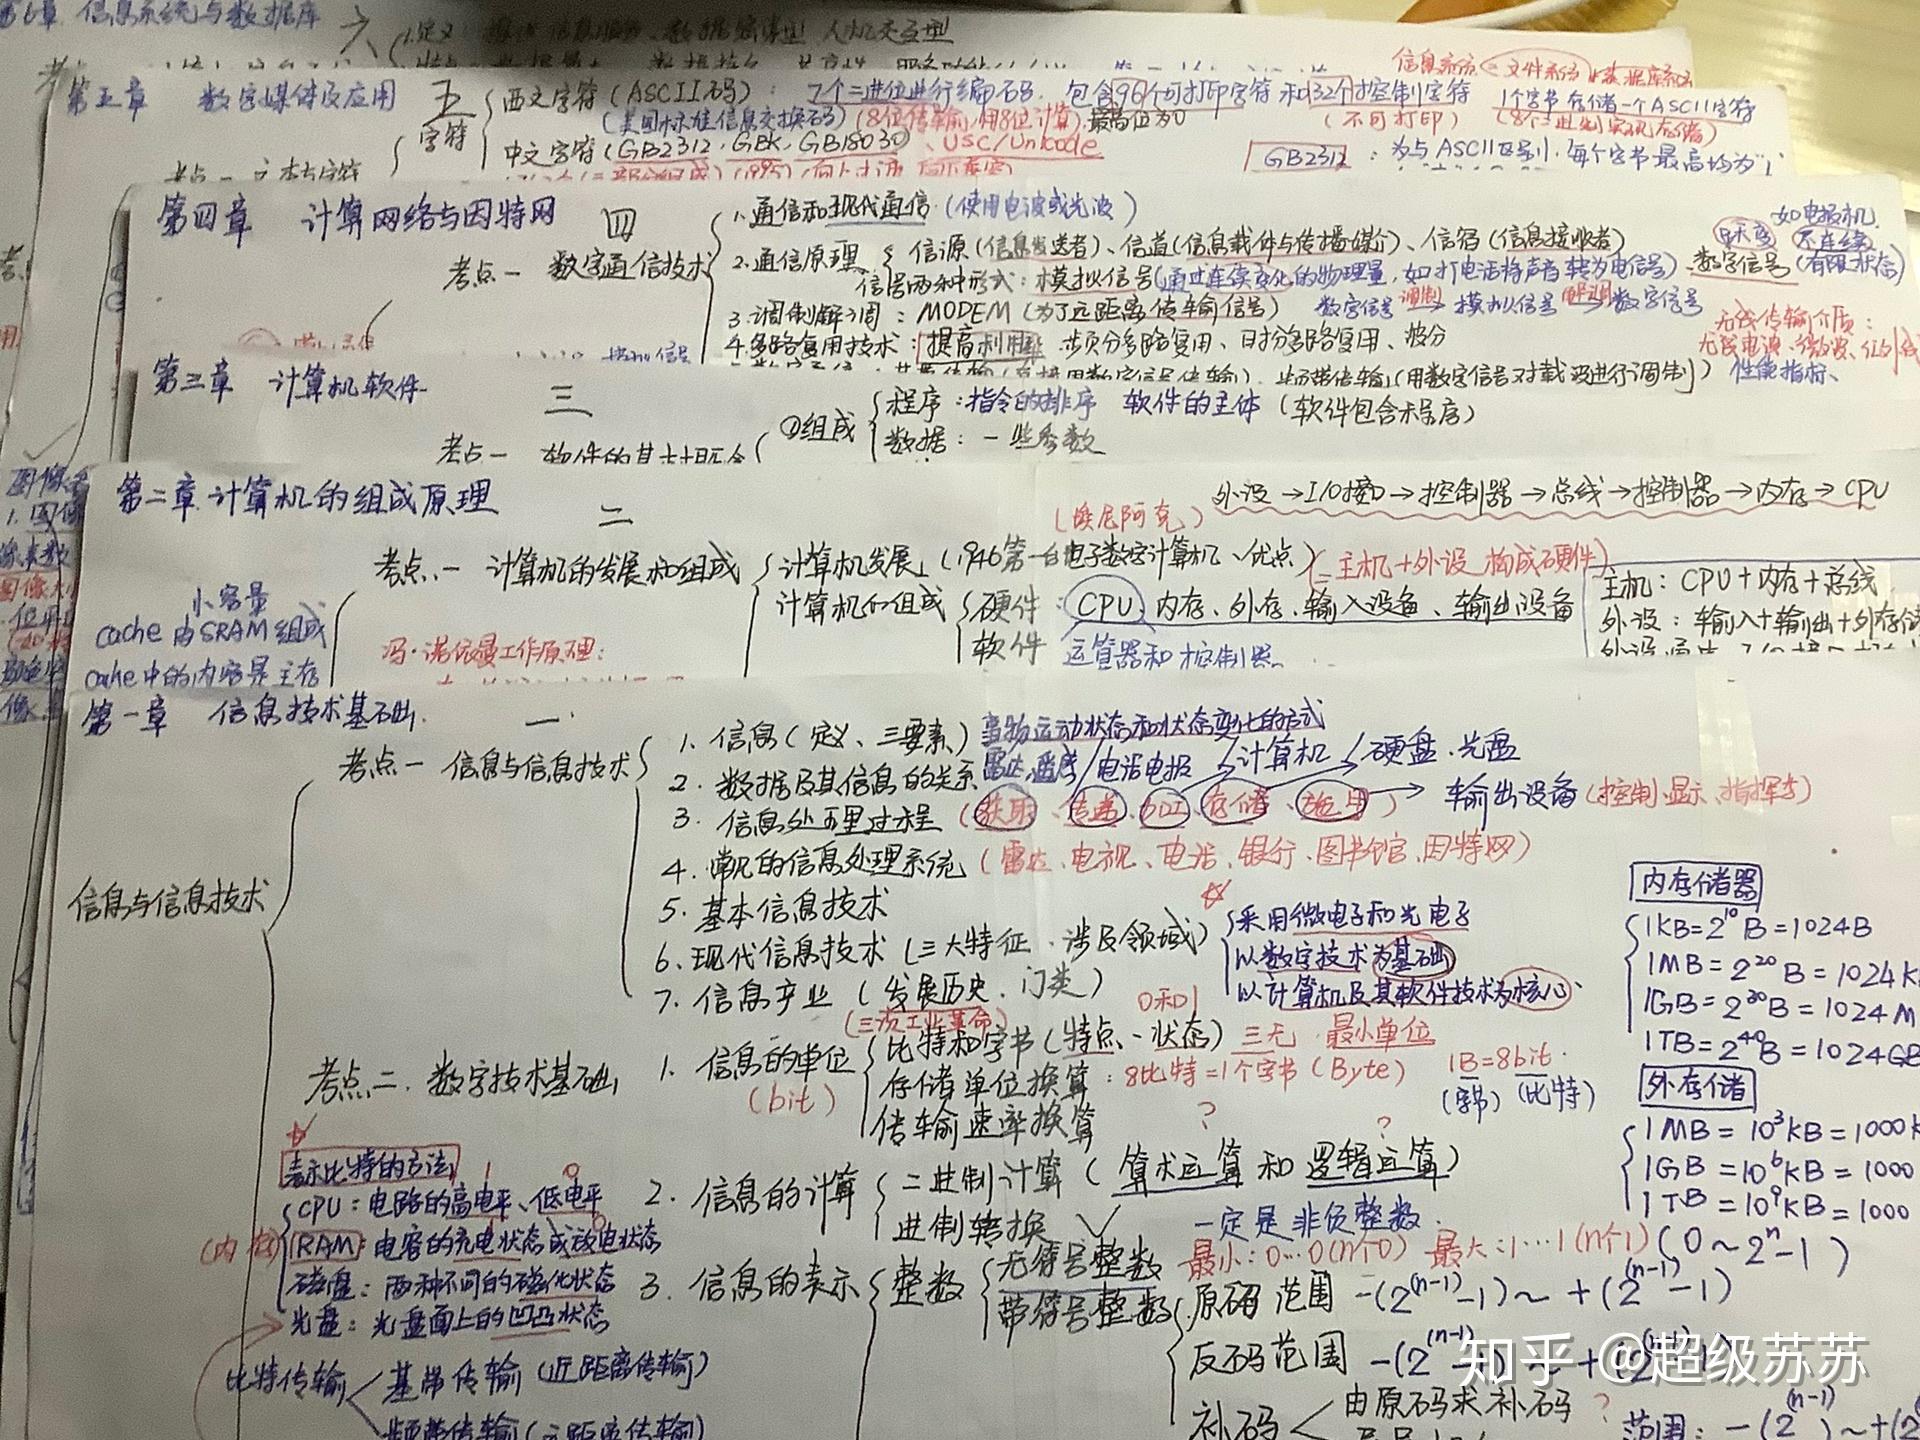 第6章 信息系统与数据库 六
1.定义 人机交互型
信息系统 = 文件系统
第五章 数字媒体及应用 五
字符 西文字符(ASCII码): 7个二进位进行编码. 包含96个可打印字符和32个控制字符 1个字节存储一个ASCII字符
(美国标准信息交换码)(8位传输,用8位计算)最高位为0 (不可打印) (8个二进制实现存储)
中文字符(GB2312、GBK、GB18030、USC/Unicode
GB2312: 为与ASCII区别,每个字节最高均为"1
考点一 文本与字符
第四章 计算网络与因特网 四
考点一 数字通信技术
1.通信和现代通信(使用电波或光波)
如电报机.
2.通信原理 信源(信息发送者)、信道(信息载体与传播媒介)、信宿(信息接收者)
不连续
信号两种形式:模拟信号(通过连续变化的物理量,如打电话将声音转为电信号)、数字信号(有限状态)
3.调制解调:MODEM(为了远距离传输信号) 数字信号 调制 模拟信号 解调 数字信号
4.多路复用技术:提高利用率 频分多路复用、时分多路复用、波分
无线传输介质:
无线电波、微波、红外线
频带传输(用数字信号对载波进行调制) 性能指标、
第三章 计算机软件 三
考点一 软件的基本概念
①组成 程序:指令的排序 软件的主体(软件包含程序)
数据:一些参数
第二章 计算机的组成原理 二
外设→I/O接口→控制器→总线→控制器→内存→CPU
(埃尼阿克)
考点一 计算机的发展和组成
计算机发展(1946第一台电子数字计算机、优点)(=主机+外设 构成硬件)
计算机的组成 硬件:CPU、内存、外存、输入设备、输出设备
软件 运算器和控制器
主机:CPU+内存+总线
外设:输入+输出+外存储
小容量
cache由SRAM组成
cache中的内容是主存
冯·诺依曼工作原理:
第一章 信息技术基础 一
信息与信息技术
考点一 信息与信息技术
1.信息(定义、三要素)事物运动状态和状态变化的方式
2.数据及其信息的关系 雷达 电话电报 计算机 硬盘.光盘
3.信息处理过程(获取、传递、加工、存储、施用)→输出设备(控制、显示、指挥等)
4.常见的信息处理系统(雷达、电视、电话、银行、图书馆、因特网)
5.基本信息技术
6.现代信息技术(三大特征、涉及领域)
采用微电子和光电子
以数字技术为基础
以计算机及其软件技术为核心
7.信息产业(发展历史、门类)
(三次工业革命)
考点二.数字技术基础
0和1
1.信息的单位 (bit)
比特和字节(特点、状态)三无.最小单位
存储单位换算:8比特=1个字节(Byte) 1B=8bit.
(字节)(比特)
传输速率换算
? ?
2.信息的计算
二进制计算(算术运算和逻辑运算)
进制转换 ✓
3.信息的表示
整数 无符号整数 一定是非负整数.
最小:0…0(n个0) 最大:1…1(n个1)(0~2ⁿ-1)
带符号整数
原码范围 -(2⁽ⁿ⁻¹⁾-1)~+(2⁽ⁿ⁻¹⁾-1)
反码范围 -(2⁽ⁿ⁻¹⁾-1)~+
补码 由原码求补码 ?
范围: -(2⁽ⁿ⁻¹⁾)~+(2
内存储器
1KB=2¹⁰B=1024B
1MB=2²⁰B=1024K
1GB=2³⁰B=1024M
1TB=2⁴⁰B=1024GB
外存储
1MB=10³KB=1000K
1GB=10⁶KB=1000
1TB=10⁹KB=1000
表示比特的方法
1 0
CPU:电路的高电平、低电平
(内存)RAM:电容的充电状态或放电状态
磁盘:两种不同的磁化状态
光盘:光盘面上的凹凸状态
比特传输 基带传输(近距离传输)
频带传输(远距离传输)
知乎 @超级苏苏